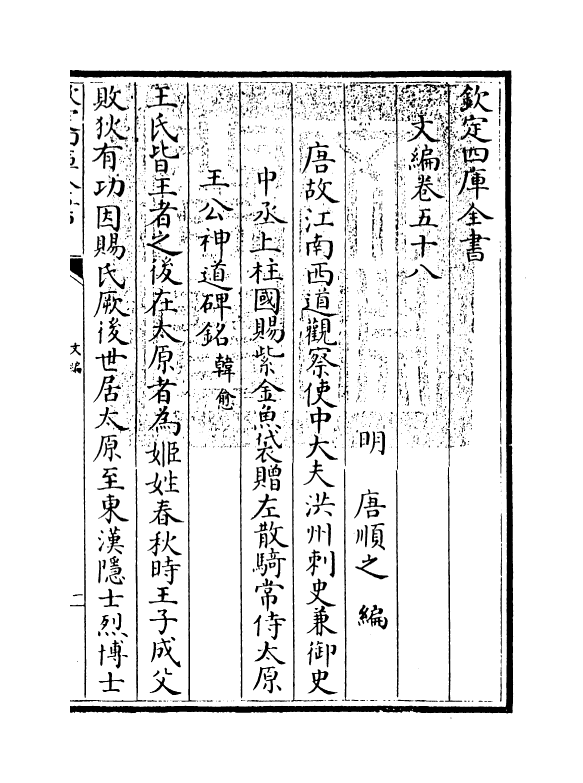 欽定四庫全書
文編卷五十八
明 唐順之 編
唐故江南西道觀察使中大夫洪州刺史兼御史
中丞上柱國賜紫金魚袋贈左散騎常侍太原
王公神道碑銘 韓愈
王氏皆王者之後在太原者為姬姓春秋時王子成父
敗狄有功因賜氏厥後世居太原至東漢隱士烈博士
文編